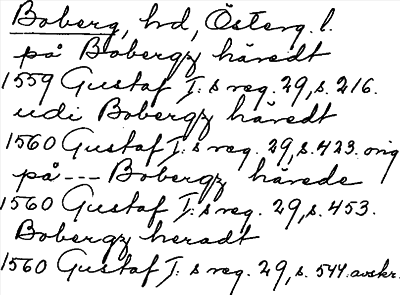 Boberg, hd, Österg. l.
på Bobergz häredt
1559 Gustaf I:s reg. 29, s. 216.
udi Bobergz häredt
1560 Gustaf I:s reg. 29, s. 423. orig
på --- Bobergz härede
1560 Gustaf I:s reg. 29, s. 453.
Bobergz heradt
1560 Gustaf I:s reg. 29, s. 544. avskr.